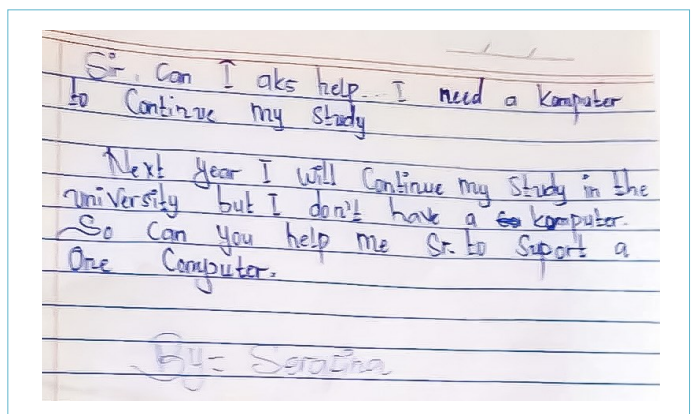 Sir. Can I aks help... I need a komputer
to Continue my study
Next year I will Continue my study in the
university but I don't have a komputer.
So can you help me Sr. to Suport a
One Computer.
By= Serafina